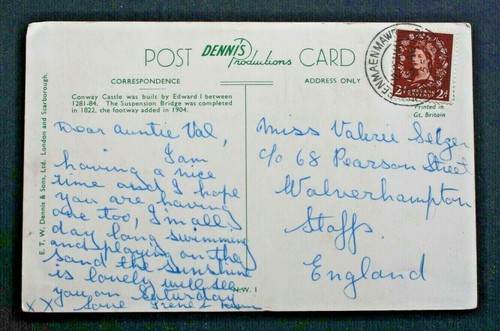 POST DENNIS Productions CARD
CORRESPONDENCE
ADDRESS ONLY
Conway Castle was built by Edward I between
1281-84. The Suspension Bridge was completed
in 1822, the footway added in 1904.
E. T. W. Dennis & Sons, Ltd. London and Scarborough.
Dear Auntie Val,
I am
having a nice
time and I hope
you are having
one too, I'm all
day long swimming
and playing on the
sand the sunshine
is lovely will see
you on Saturday
xx love Irene &
N.W. 1
PENMAENMAWR
2d 2d
Printed in
Gt. Britain
Miss Valerie Selger
c/o 68 Pearson Street
Wolverhampton
Staffs.
England